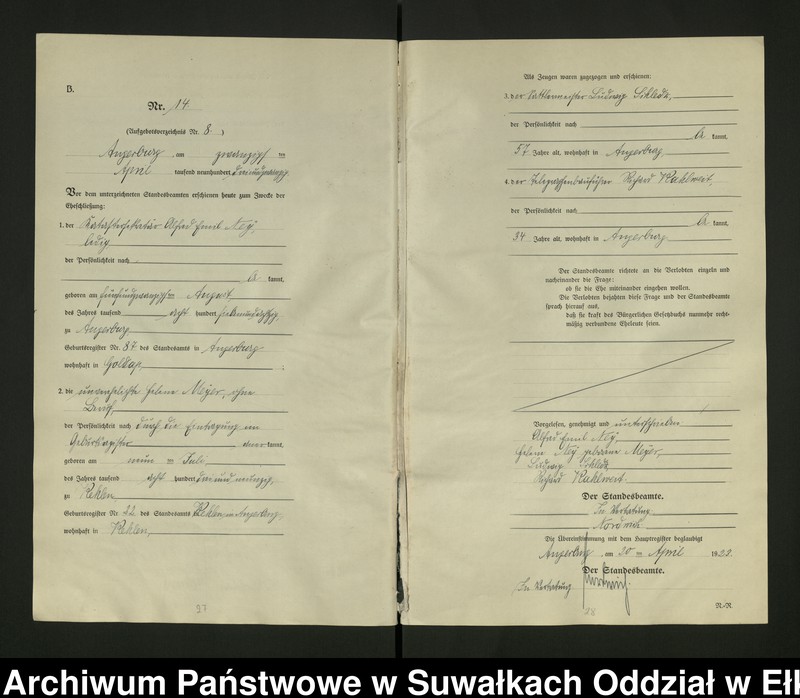 B.
Nr. 14.
(Aufgebotsverzeichnis Nr. 8.)
Angerburg am zwanzigsten
April tausend neunhundert
Vor dem unterzeichneten Standesbeamten erschienen heute zum Zwecke der
Eheschließung:
1. der Alfred Emil Ney,
ledig
der Persönlichkeit nach
kannt,
geboren am fünfundzwanzigsten August
des Jahres tausend acht hundert
zu Angerburg
Geburtsregister Nr. 87 des Standesamts in Angerburg
wohnhaft in Goldap,
2. die unverehelichte Helene Meyer, ohne
Beruf,
der Persönlichkeit nach durch die Eintragung im
Geburtsregister kannt,
geboren am neunten Juli
des Jahres tausend acht hundert dreiundneunzig,
zu Kehlen
Geburtsregister Nr. 22 des Standesamts Kehlen, Angerburg,
wohnhaft in Kehlen,
27
Als Zeugen waren zugezogen und erschienen:
3. der Sattlermeister Ludwig
der Persönlichkeit nach
kannt,
57 Jahre alt, wohnhaft in Angerburg
4. der Richard Kuhlwert,
der Persönlichkeit nach
kannt,
34 Jahre alt, wohnhaft in Angerburg
Der Standesbeamte richtete an die Verlobten einzeln und
nacheinander die Frage:
ob sie die Ehe miteinander eingehen wollen.
Die Verlobten bejahten diese Frage und der Standesbeamte
sprach hierauf aus,
daß sie kraft des Bürgerlichen Gesetzbuchs nunmehr recht-
mäßig verbundene Eheleute seien.
Vorgelesen, genehmigt und unterschrieben
Alfred Emil Ney,
Helene Ney geborene Meyer,
Ludwig
Richard Kuhlwert.
Der Standesbeamte.
In Vertretung
Die Übereinstimmung mit dem Hauptregister beglaubigt
Angerburg, am 20 ten April 19
Der Standesbeamte.
In Vertretung
28
Archiwum Państwowe w Suwałkach Oddział w Eł